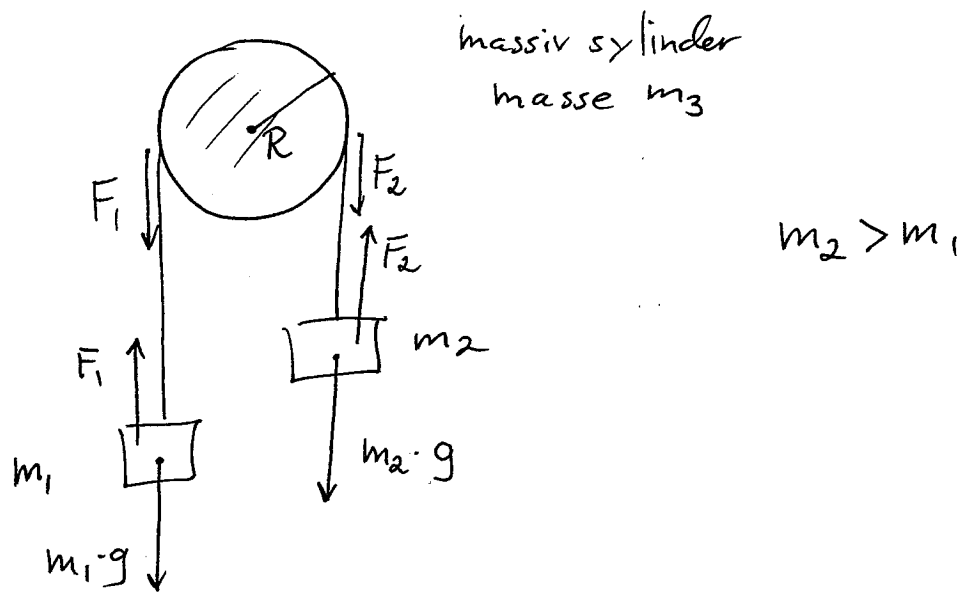 massiv sylinder
masse m₃
R
F₁
F₂
F₂
m₂ > m₁
F₁
m₂
m₂·g
m₁
m₁·g